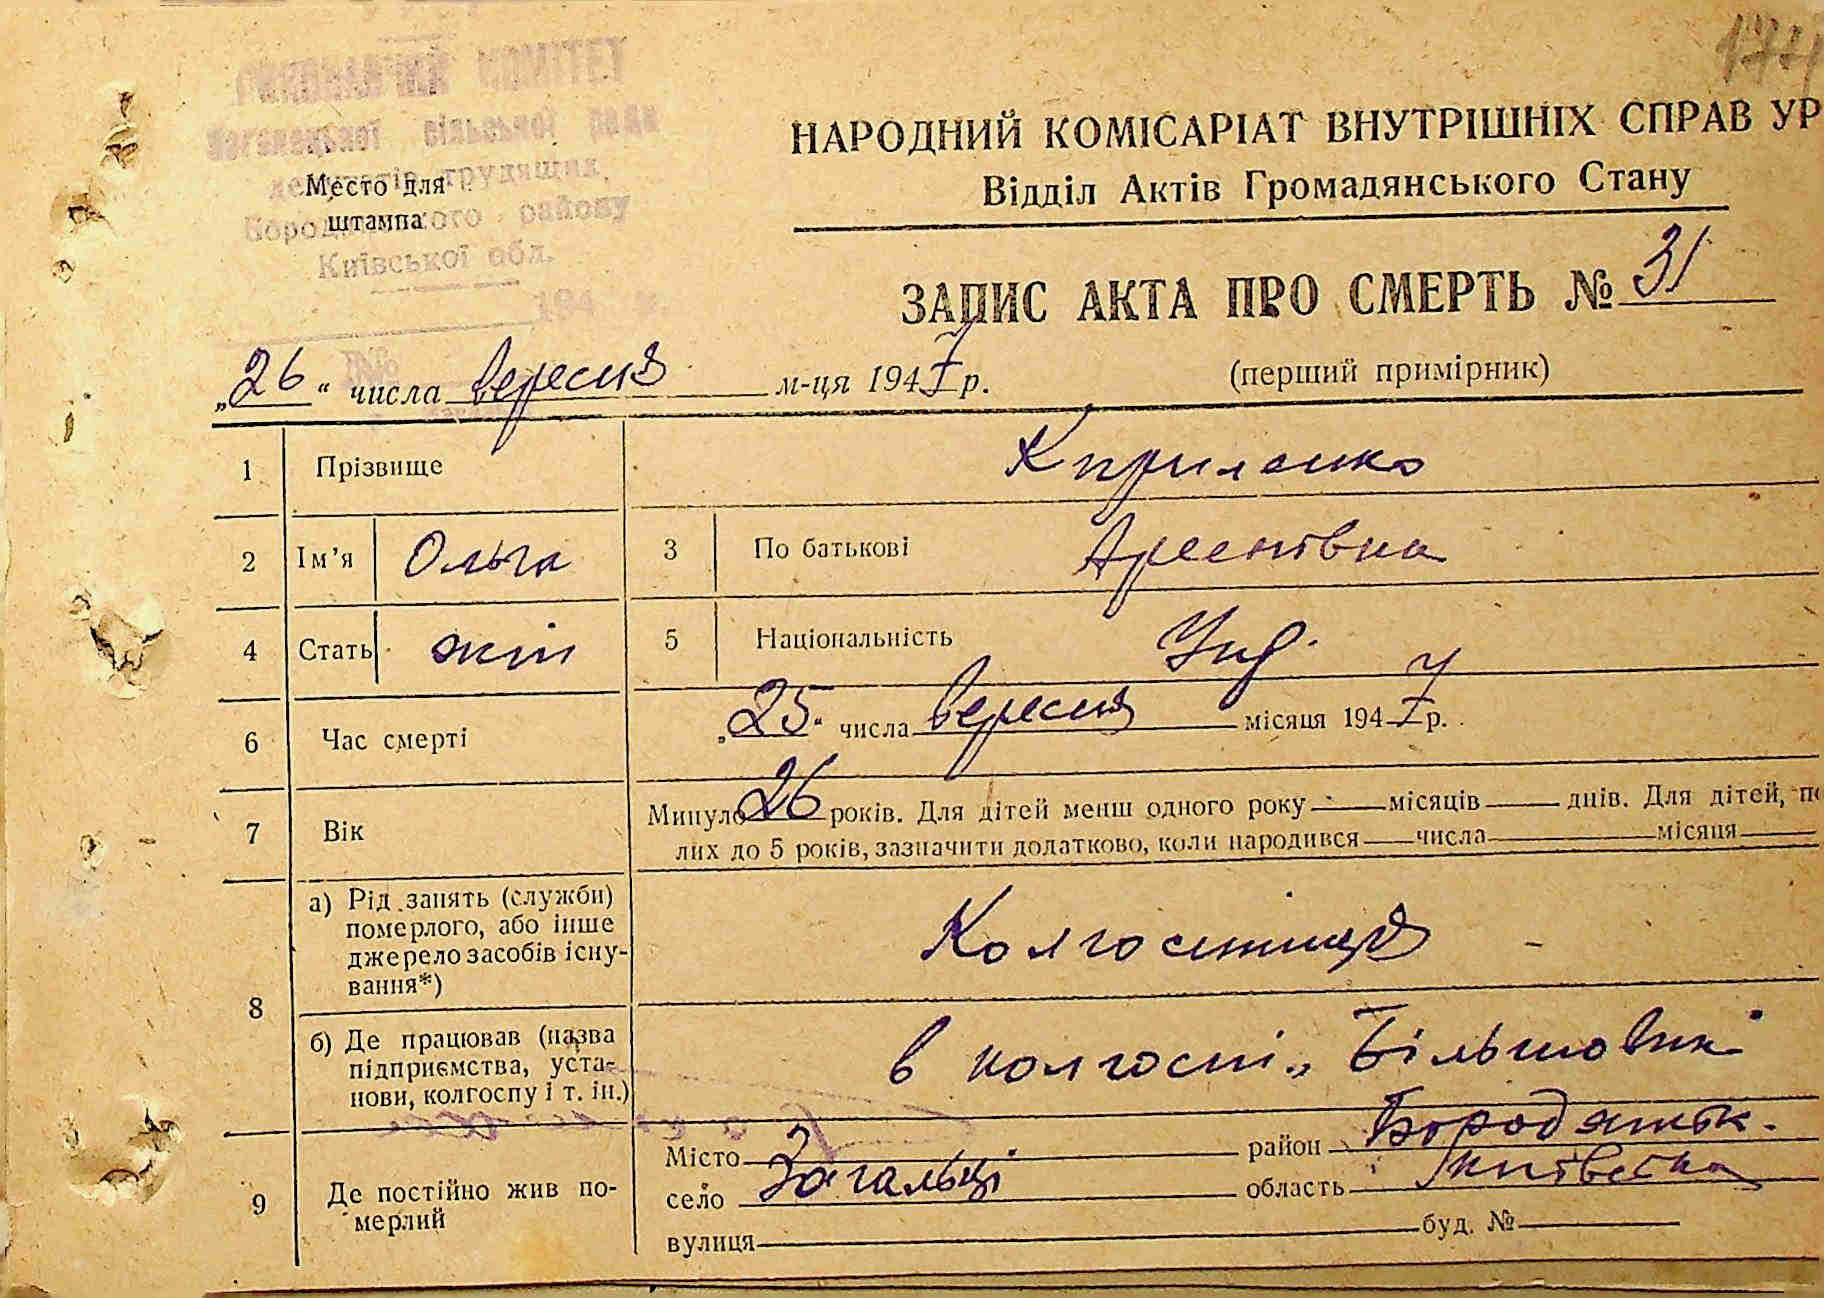 174
КОМІТЕТ
сільської ради
депутатів трудящих,
Бородянського району
Київської обл.
194 р.
№
Место для
штампа
НАРОДНИЙ КОМІСАРІАТ ВНУТРІШНІХ СПРАВ УР
Відділ Актів Громадянського Стану
ЗАПИС АКТА ПРО СМЕРТЬ № 31
(перший примірник)
„26“ числа вересня м-ця 1947 р.
1 Прізвище Кириленко
2 Ім’я Ольга 3 По батькові Арсентівна
4 Стать жін 5 Національність Укр.
6 Час смерті „25“ числа вересня місяця 1947 р.
7 Вік Минуло 26 років. Для дітей менш одного року — місяців — днів. Для дітей, по
лих до 5 років, зазначити додатково, коли народився — числа — місяця —
8 а) Рід занять (служби)
померлого, або інше
джерело засобів існу-
вання*) Колгоспниця
б) Де працював (назва
підприємства, уста-
нови, колгоспу і т. ін.) в колгоспі „Більшовик
9 Де постійно жив по-
мерлий
Місто — район Бородянськ.
село Загальці область Київська
вулиця — буд. №